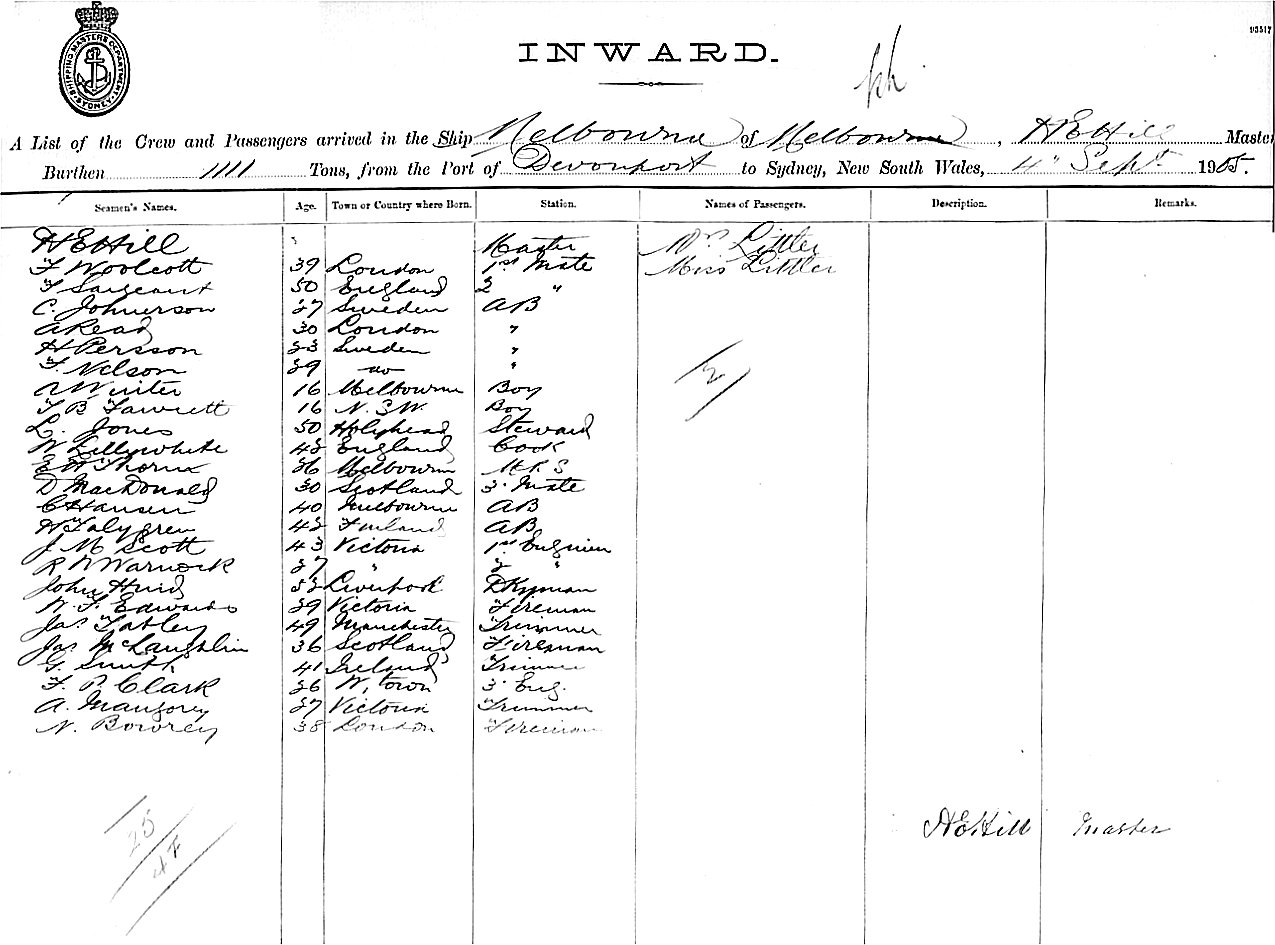 SHIPPING MASTERS DEPARTMENT SYDNEY
93517
INWARD.
A List of the Crew and Passengers arrived in the Ship Melbourne of Melbourne, H E Hill Master
Burthen 1111 Tons, from the Port of Devonport to Sydney, New South Wales, 4" Sept 1905.
Seamen's Names. Age. Town or Country where Born. Station. Names of Passengers. Description. Remarks.
H E Hill Master Littler
F Woolcott 39 London 1st Mate Miss Littler
F Sargeant 50 England 2 "
C. Johnerson 27 Sweden AB
A Read 30 London "
H Persson 23 Sweden "
F. Nelson 29 do "
A Winter 16 Melbourne Boy
T B Fawcett 16 N. S. W. Boy
L. Jones 50 Holyhead Steward
W Lillywhite 42 England Cook
E W Thorne 26 Melbourne
D MacDonald 30 Scotland 3" Mate
C Hansen 40 Melbourne AB
42 Finland AB
J. M Scott 43 Victoria 1st Engineer
R W Warnock 27 " 2 "
John 52 Liverpool Dkyman
W. F. Edwards 39 Victoria Fireman
Jas Tatley 49 Manchester Trimmer
Jas McLaughlin 36 Scotland Fireman
G. Smith 41 Ireland Trimmer
F. P. Clark 26 W, town 3" Eng.
A. 27 Victoria Trimmer
N. Bowrey 38 London Fireman
2
25
H E Hill Master